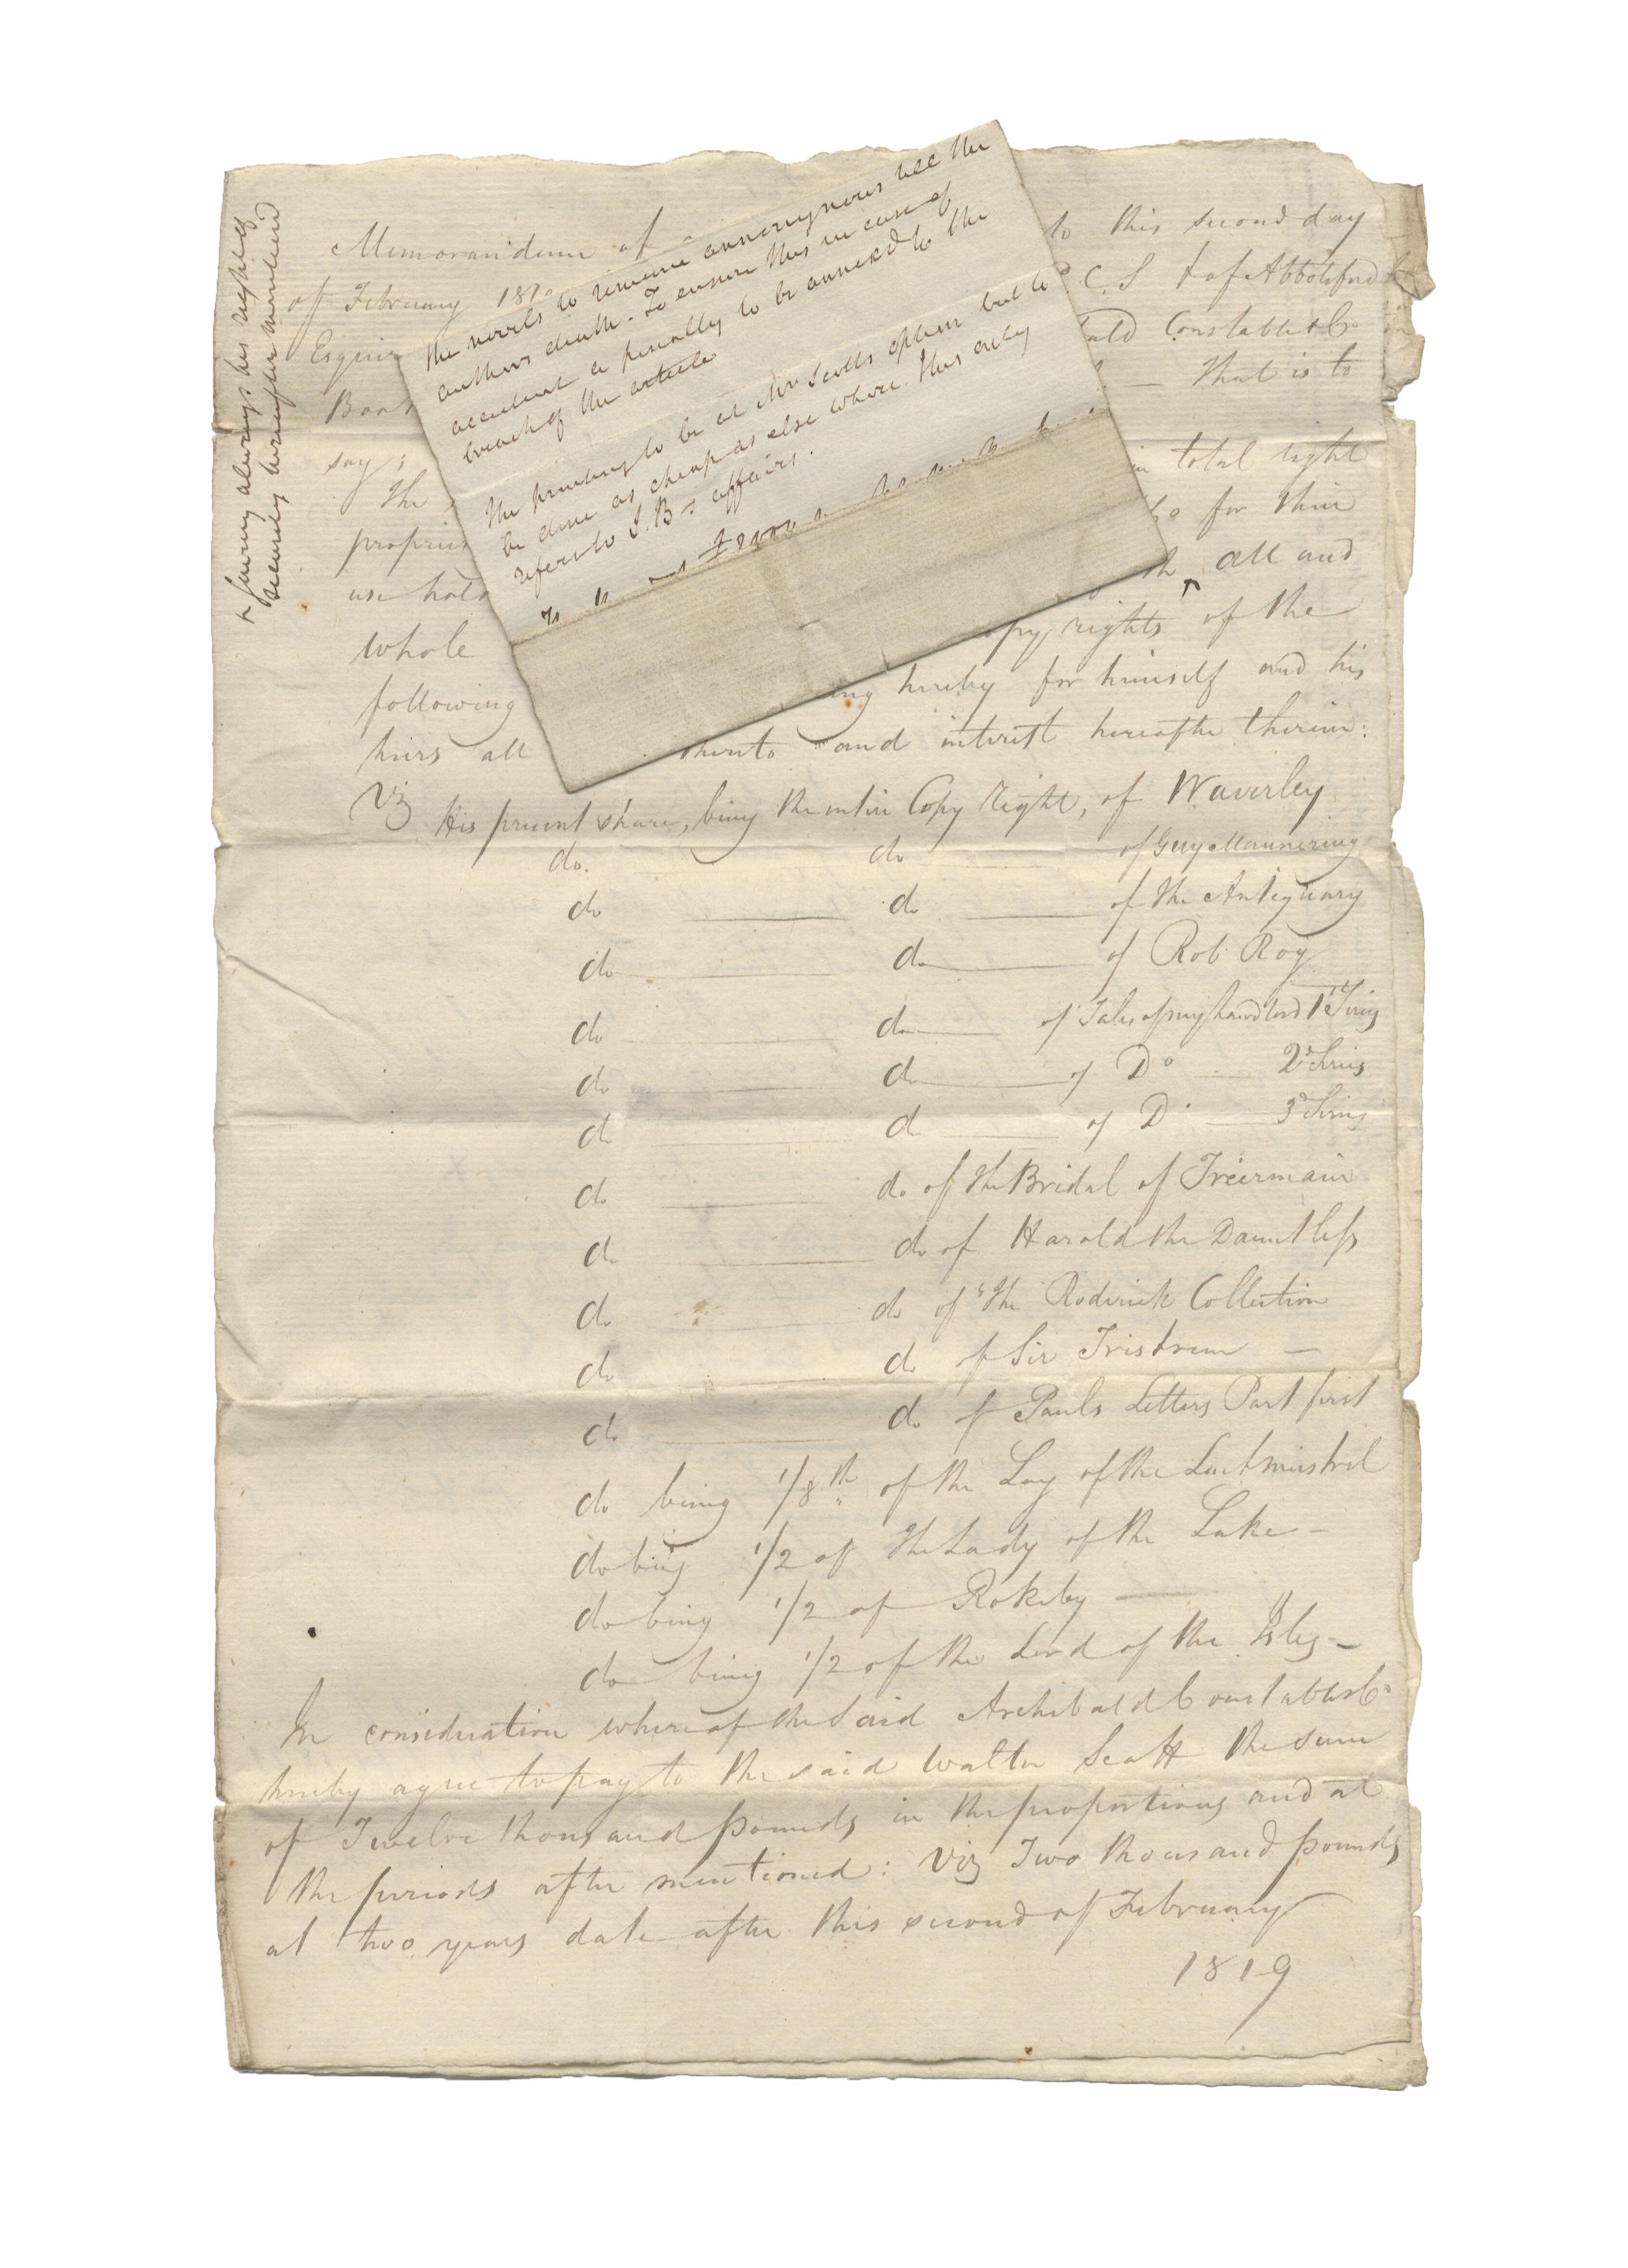 + saving always his rights
security hereafter mentioned
Memorandum of
to this second day
of February 181
C. S & of Abbotsford
Esquire
ald Constable & Co
Book
That is to
say;
The
in total right
proprie
Co for their
use hold
all and
whole
opy rights of the
following
ing hereby for himself and his
heirs all
thereto and interest hereafter therein:
Viz His present share, being the entire Copy Right, of Waverley
do. do of Guy Mannering
do do of the Antiquary
do do of Rob Roy
do do of Tales of my Landlord 1st Series
do do of Do 2d Series
do do of Do 3d Series
do do of the Bridal of Triermain
do do of Harold the Dauntless
do do of "The Roderick Collection
do do of Sir Tristrem —
do do of Pauls Letters Part first
do being 1/8th of the Lay of the Last minstrel
do being 1/2 of The Lady of the Lake —
do being 1/2 of Rokeby —
do being 1/2 of the Lord of the Isles —
In consideration whereof the Said Archibald Constable & Co
hereby agree to pay to the said Walter Scott the sum
of Twelve thousand pounds in the proportions and at
the periods after mentioned: Viz Two thousand pounds
at two years date after this second of February
1819
The novels to remain annonymous till the
authors death. To ensure this in case of
accident a penalty to be annexed to the
breach of the article
The printing to be at Mr Scotts option but to
be done as cheap as else where. This only
refers to J. Bs affairs.